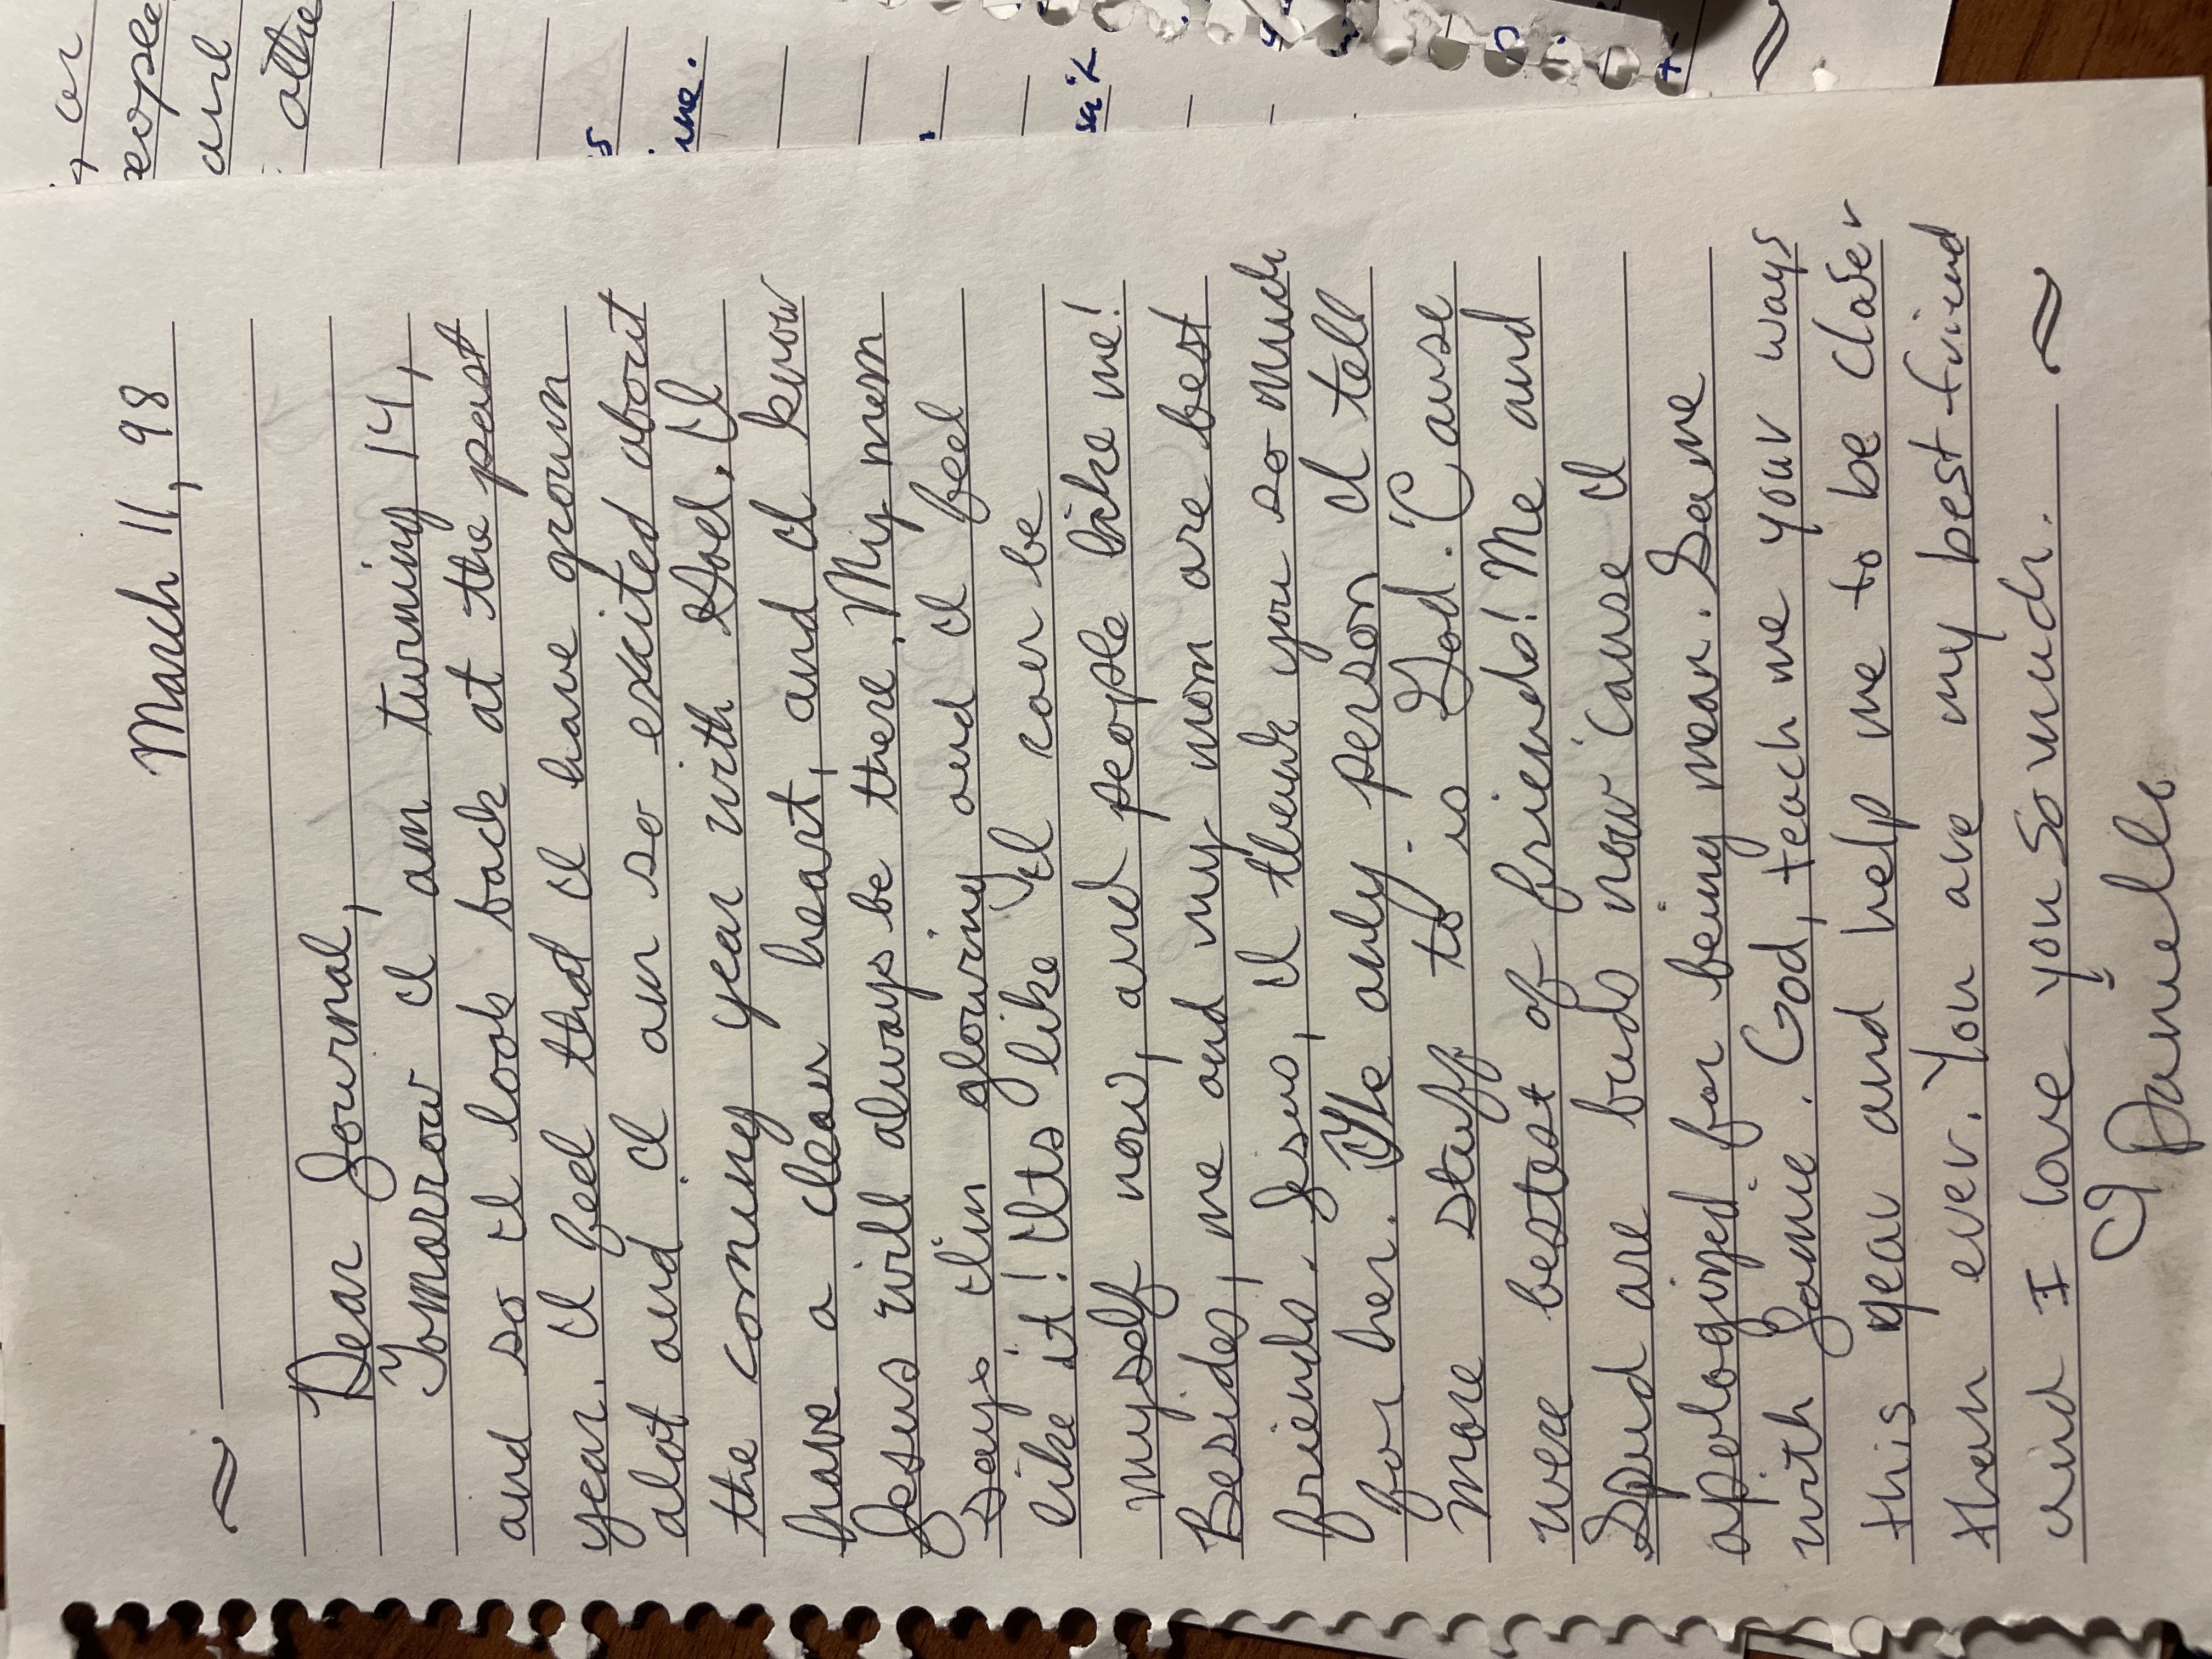 March 11, 98
Dear Journal,
Tomorrow I am turning 14,
and so I look back at the past
year. I feel that I have grown
alot and I am so excited about
the coming year with God. I
have a clear heart, and I know
Jesus will always be there. My mom
says I'm glowing and I feel
like it! Its like I can be
myself now, and people like me!
Besides, me and my mom are best
friends. Jesus, I thank you so much
for her. The only person I tell
more stuff to is God. 'Cause
were bestest of friends! Me and
Spud are buds now 'cause I
apologized for being mean. Same
with Jamie. God, teach me your ways
this year and help me to be closer
than ever. You are my best friend
and I love you so much.
Danielle
or
people
and
me.